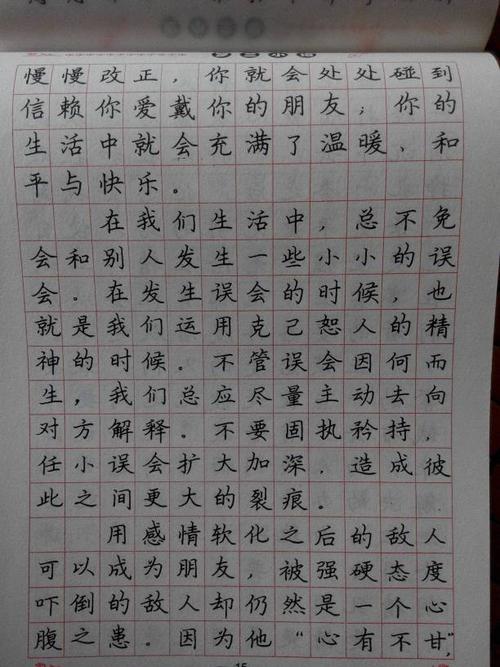 慢慢改正，你就会处处碰到
信赖你爱戴你的朋友；你的
生活中就会充满了温暖、和
平与快乐。
在我们生活中，总不免
会和别人发生一些小小的误
会。在发生误会的时候，也
就是我们运用克己恕人的精
神的时候。不管误会因何而
生，我们总应尽量主动去向
对方解释。不要固执矜持，
任小误会扩大加深，造成彼
此之间更大的裂痕。
用感情软化之后的敌人
可以成为朋友，被强硬态度
吓倒的敌人却仍然是一个心
腹之患。因为他“心有不甘”，
15